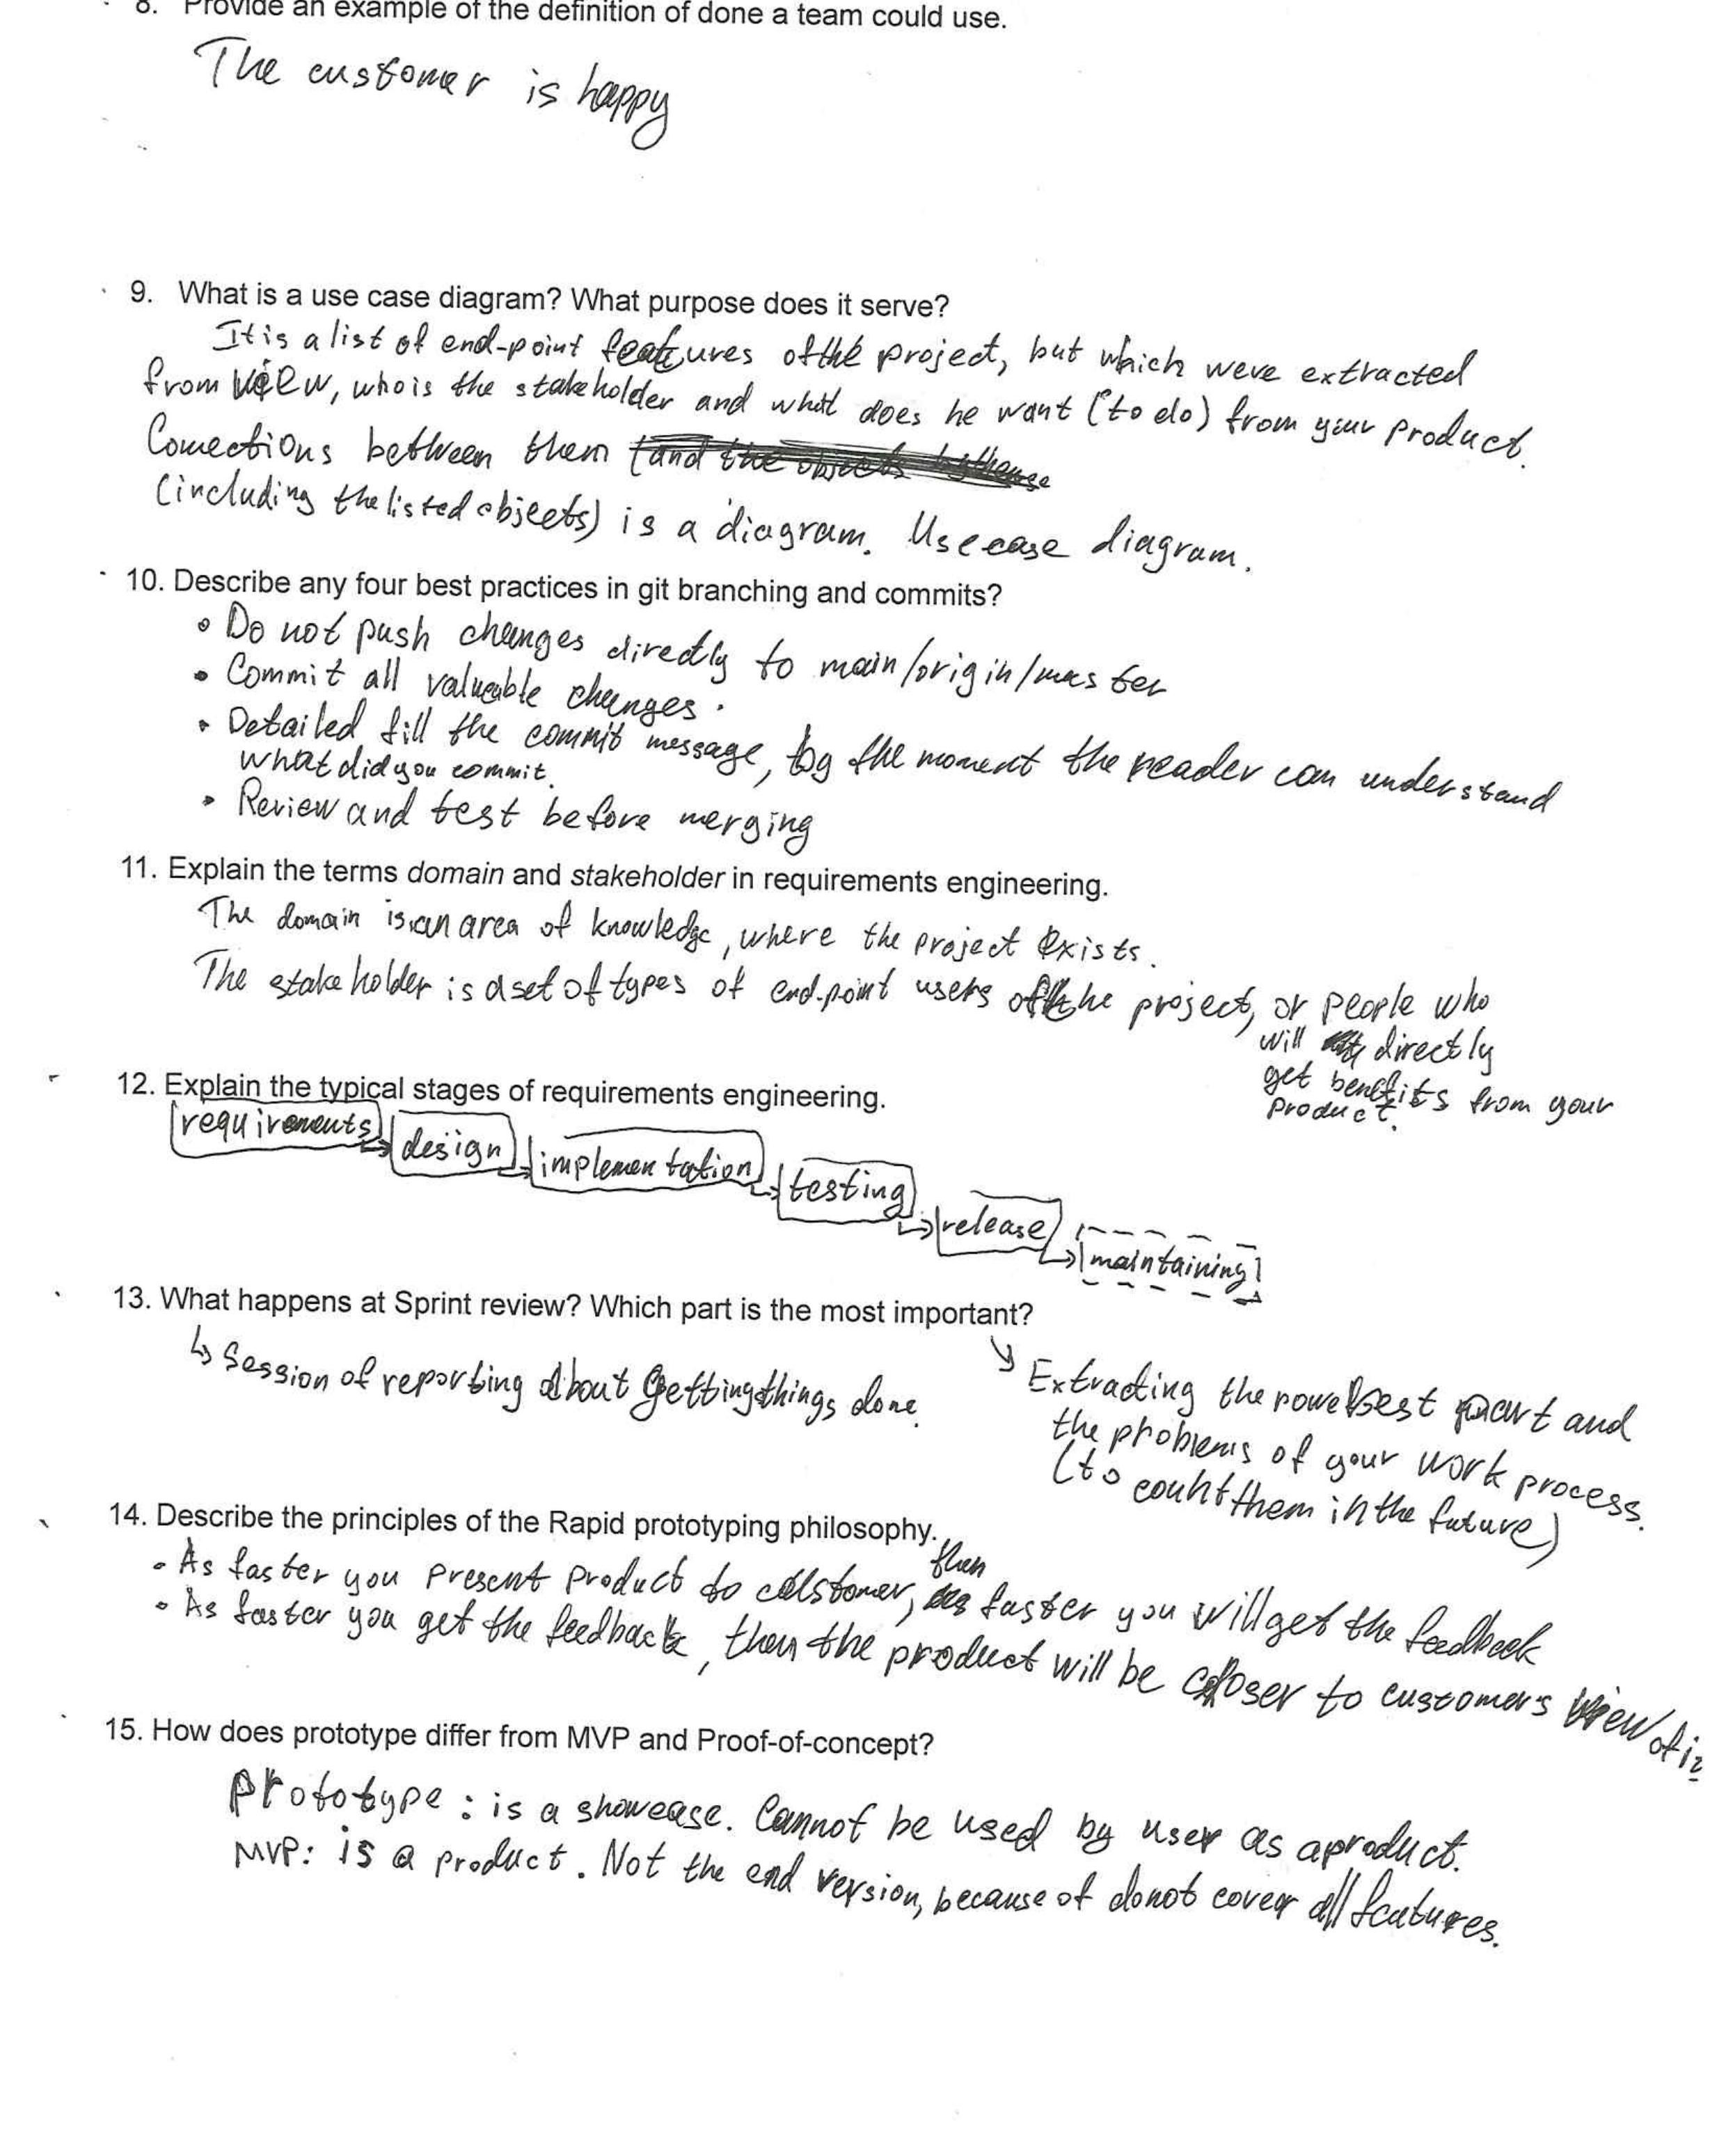 8. Provide an example of the definition of done a team could use.
The customer is happy
9. What is a use case diagram? What purpose does it serve?
It is a list of end-point features of the project, but which were extracted
from view, who is the stakeholder and what does he want (to do) from your product.
Connections between them
(including the listed objects) is a diagram. Use case diagram.
10. Describe any four best practices in git branching and commits?
• Do not push changes directly to main/origin/master
• Commit all valueable changes.
• Detailed fill the commit message, by the moment the reader can understand
what did you commit.
• Review and test before merging
11. Explain the terms domain and stakeholder in requirements engineering.
The domain is an area of knowledge, where the project exists.
The stakeholder is a set of types of end-point users of the project, or people who
will directly
get benefits from your
product.
12. Explain the typical stages of requirements engineering.
requirements
design
implementation
testing
release
maintaining
13. What happens at Sprint review? Which part is the most important?
↳ Session of reporting about getting things done.
↘ Extracting the power best part and
the problems of your work process.
(to count them in the future)
14. Describe the principles of the Rapid prototyping philosophy.
• As faster you present product to customer, then faster you will get the feedback
• As faster you get the feedback, then the product will be closer to customers view of it
15. How does prototype differ from MVP and Proof-of-concept?
Prototype: is a showcase. Cannot be used by user as a product.
MVP: is a product. Not the end version, because of do not cover all features.